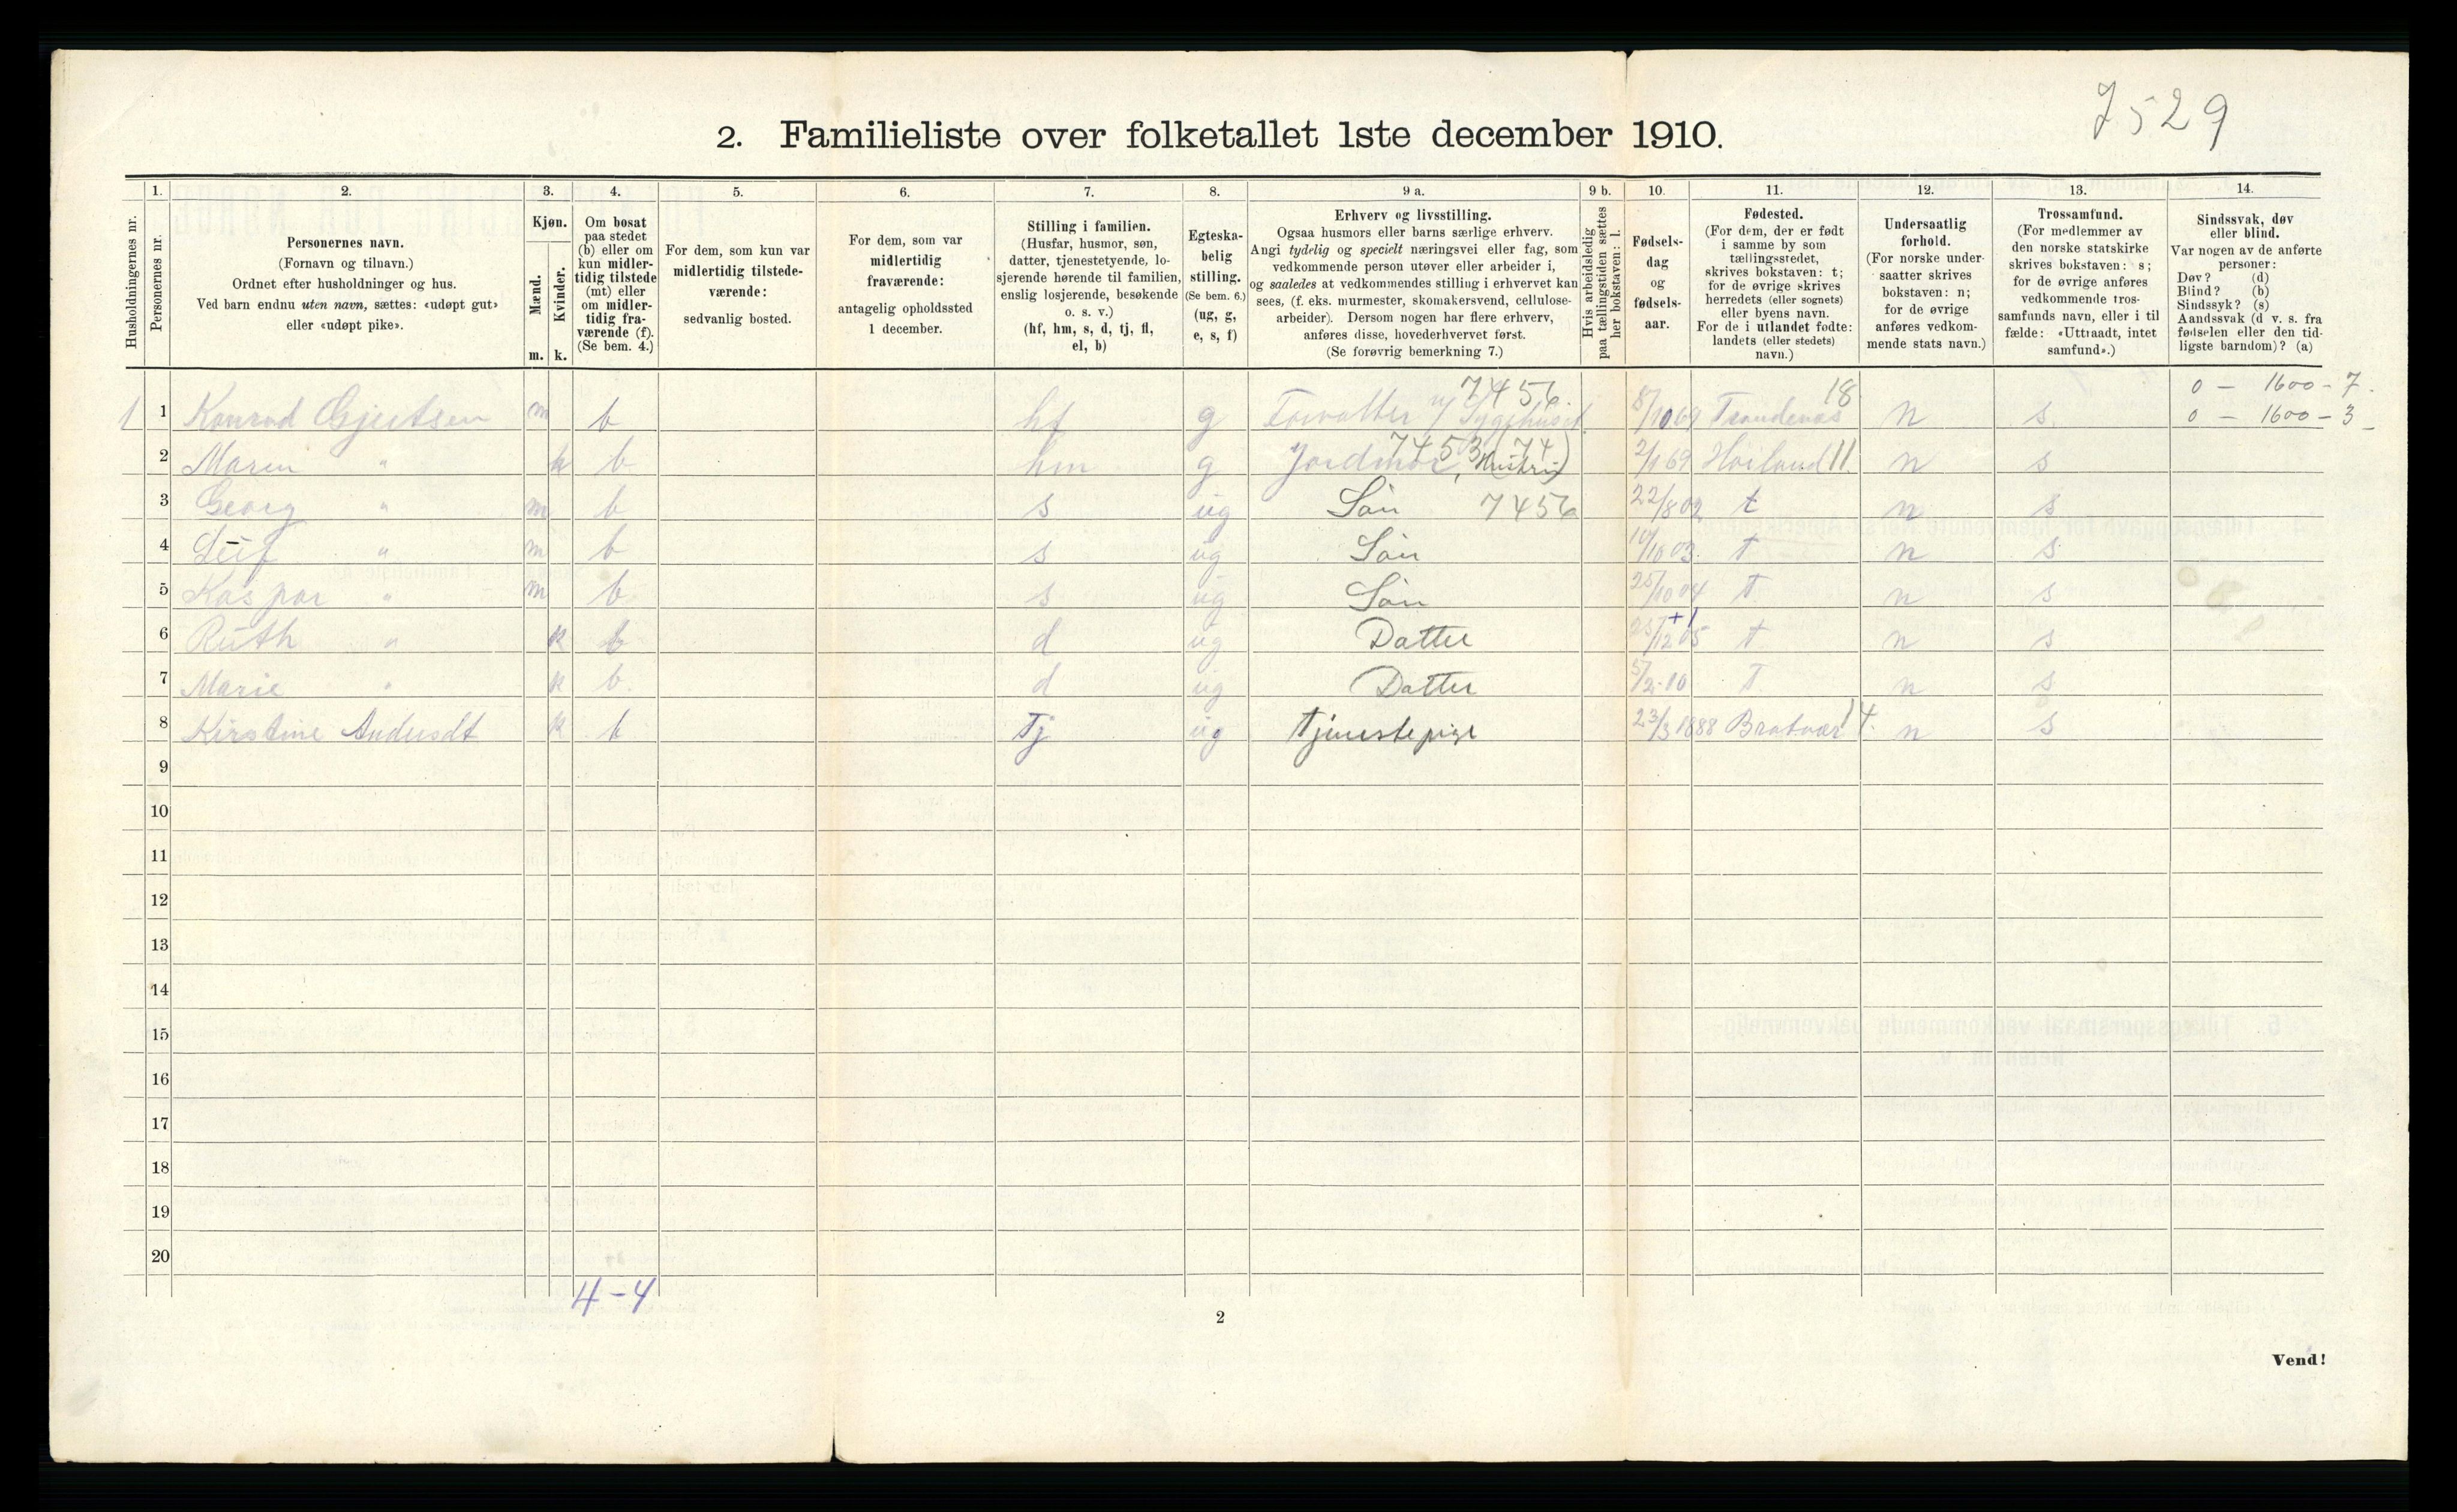 7529
2. Familieliste over folketallet 1ste december 1910.
Husholdningernes nr.
1.
Personernes nr.
2.
Personernes navn.
(Fornavn og tilnavn.)
Ordnet efter husholdninger og hus.
Ved barn endnu uten navn, sættes: «udøpt gut»
eller «udøpt pike».
3.
Kjøn.
Mænd.
Kvinder.
m. k.
4.
Om bosat
paa stedet
(b) eller om
kun midler-
tidig tilstede
(mt) eller
om midler-
tidig fra-
værende (f).
(Se bem. 4.)
5.
For dem, som kun var
midlertidig tilstede-
værende:
sedvanlig bosted.
6.
For dem, som var
midlertidig
fraværende:
antagelig opholdssted
1 december.
7.
Stilling i familien.
(Husfar, husmor, søn,
datter, tjenestetyende, lo-
sjerende hørende til familien,
enslig losjerende, besøkende
o. s. v.)
(hf, hm, s, d, tj, fl,
el, b)
8.
Egteska-
belig
stilling.
(Se bem. 6.)
(ug, g,
e, s, f)
9 a.
Erhverv og livsstilling.
Ogsaa husmors eller barns særlige erhverv.
Angi tydelig og specielt næringsvei eller fag, som
vedkommende person utøver eller arbeider i,
og saaledes at vedkommendes stilling i erhvervet kan
sees, (f. eks. murmester, skomakersvend, cellulose-
arbeider). Dersom nogen har flere erhverv,
anføres disse, hovederhvervet først.
(Se forøvrig bemerkning 7.)
9 b.
Hvis arbeidsledig
paa tællingstiden sættes
her bokstaven: l.
10.
Fødsels-
dag
og
fødsels-
aar.
11.
Fødested.
(For dem, der er født
i samme by som
tællingsstedet,
skrives bokstaven: t;
for de øvrige skrives
herredets (eller sognets)
eller byens navn.
For de i utlandet fødte:
landets (eller stedets)
navn.)
12.
Undersaatlig
forhold.
(For norske under-
saatter skrives
bokstaven: n;
for de øvrige
anføres vedkom-
mende stats navn.)
13.
Trossamfund.
(For medlemmer av
den norske statskirke
skrives bokstaven: s;
for de øvrige anføres
vedkommende tros-
samfunds navn, eller i til
fælde: «Uttraadt, intet
samfund».)
14.
Sindssvak, døv
eller blind.
Var nogen av de anførte
personer:
Døv? (d)
Blind? (b)
Sindssyk? (s)
Aandssvak (d v. s. fra
fødselen eller den tid-
ligste barndom)? (a)
7456. 18 0 - 1600 - 7.
1 1 Konrad Gjertsen m b hf g Forvalter v/ Sygehuset 8/10 69 Trondenæs n s 0 - 1600 - 3
7453 (74)
2 Maren " k b hm g Jordmor, Hustru 2/1 69 Høiland 11 n s
3 Georg " m b s ug Søn 7456 22/8 02 t n s
4 Leif " m b s ug Søn 10/10 03. t n s
5 Kaspar " m b s ug Søn 25/10 04 t. n s
6 Ruth " k b d ug Datter 25/12 05 t n s
7 Marie " k b. d ug Datter 5/2-10 t n s
8 Kirstine Andersdt k b Tj ug Tjenestepige 23/3 1888 Bratvær 14. n s
9
10
11
12
13
14
15
16
17
18
19
20
4-4
2
Vend!